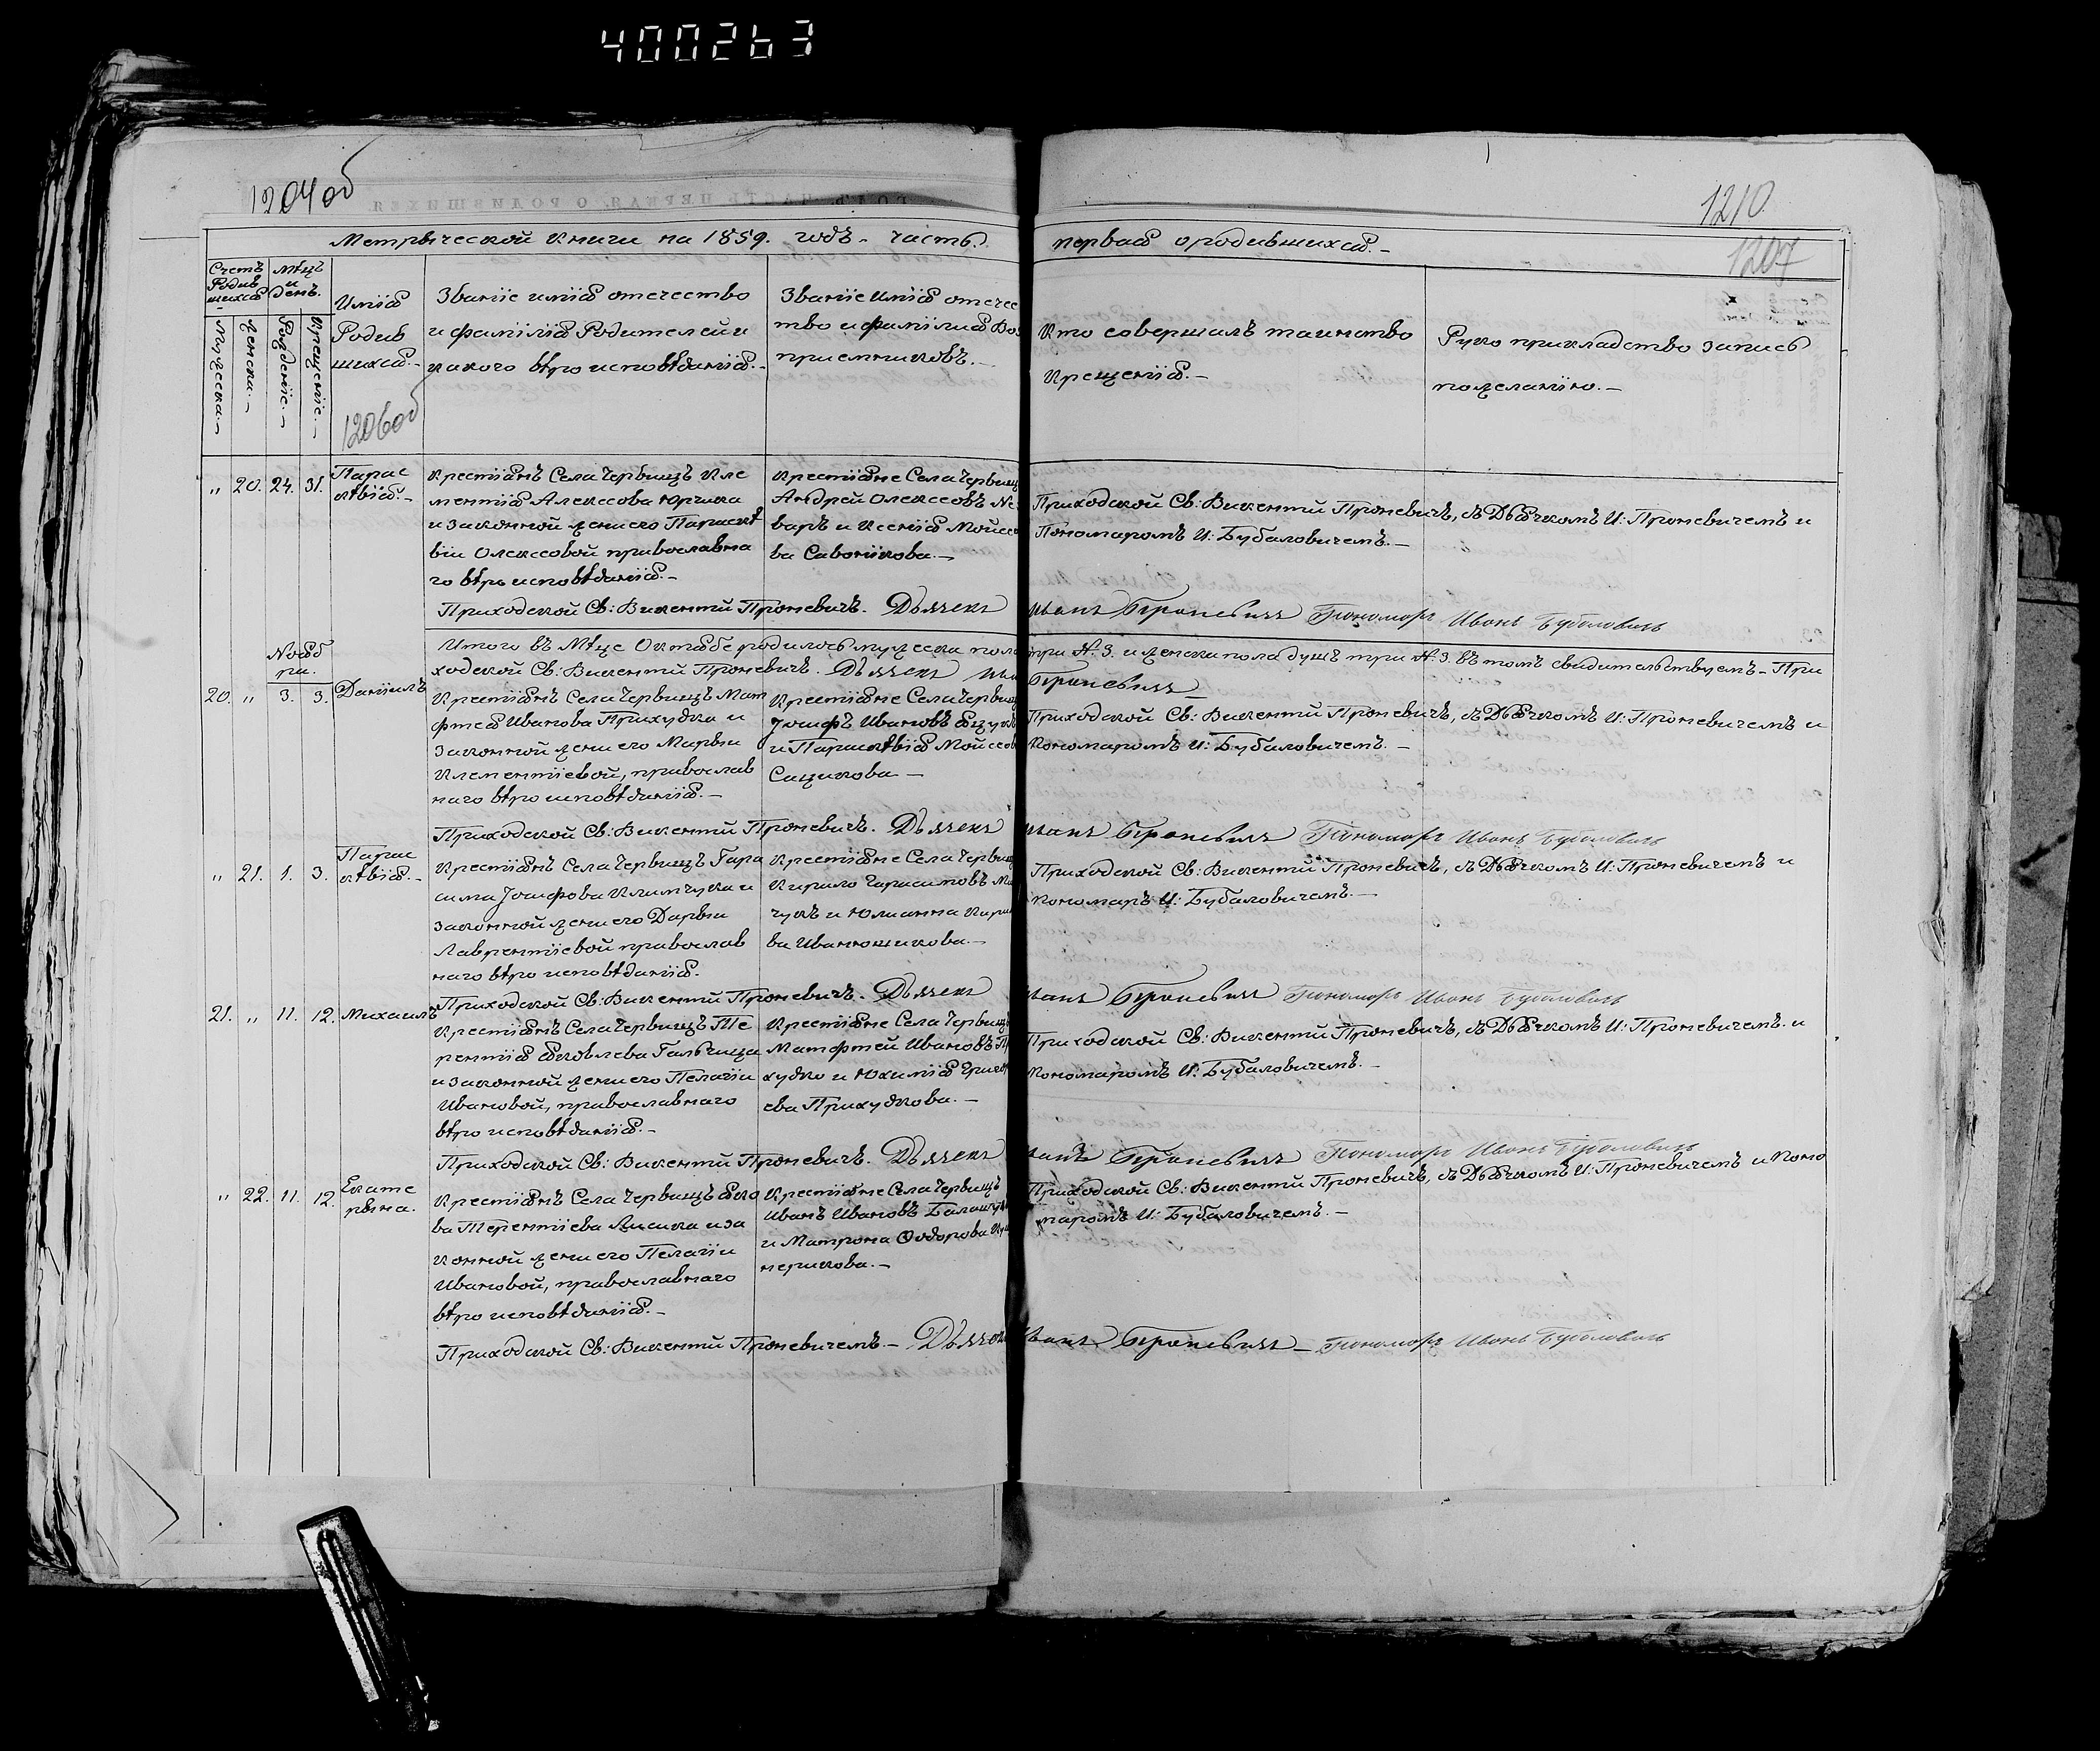 400263
1204 об
1210
1207
Метрической книги на 1859. годъ. часть.
первая о родившихся.
Счетъ Родившихся
Мѣцъ и День.
Мужеска.
Женска.
Рожденіе.
Крещеніе.
Имія
Родив
шихся.
1206 об
Званіе имія отечество
и фамілія Родителей и
какого вѣроисповѣданія.
Званіе имія отечес
тво и фамілия Во
приемниковъ.
Кто совершалъ таинство
Крещенія.
Руко прикладство запись
пожеланію.
" 20. 24. 31.
Парас
кѣвія.
Крестіянъ Села Червищъ Кле
ментія Алексова Юрчика
и законной жени его Параскѣ
віи Олексовой православна
го вѣроисповѣданія.
Крестіяне Села Червищ
Андрей Олексовъ
варъ и Ксенія Мойсео
ва Савонікова.
Приходской Св: Викентій Проневичъ, съ Дьячкомъ И: Проневичемъ и
Пономаромъ И: Бубаловичемъ.
Приходской Св: Викентій Проневичъ. Дьячекъ Иванъ Проневичъ Пономоръ Иванъ Бубаловичъ
Итого въ Мѣце Октябре родилось мужеска пола три №. 3. и женска пола душъ три №. 3. въ томъ свидительствуемъ При
ходской Св: Викентій Проневичъ. Дьячекъ Иванъ Проневичъ
Нояб
ра.
20. " 3. 3.
Даніилъ
Крестіянъ Села Червищъ Мат
фтея Иванова Прихудка и
законной жени его Марьи
Клементіевой, православ
наго вѣроисповѣданія.
Крестіяне Села Червищ
Іоифъ Ивановъ
и Параскѣвія Мойсеов
Сацикова
Приходской Св: Викентій Проневичъ, съ Дьячкомъ И: Проневичемъ и
Пономаромъ И: Бубаловичемъ.
Приходской Св: Викентій Проневичъ. Дьячекъ Иванъ Проневичъ Пономоръ Иванъ Бубаловичъ
" 21. 1. 3.
Парас
кѣвія.
Крестіянъ Села Червищъ Гара
сима Іоифова Климчука и
законной жени его Дарьи
Лаврентіевой православ
наго вѣроисповѣданія.
Крестіяне Села Червищ
Кирило Гарасимовъ
чукъ и Юлианна
ва Иванюшикова.
Приходской Св: Викентій Проневичъ, съ Дьячкомъ И: Проневичемъ и
пономаръ И: Бубаловичемъ.
Приходской Св: Викентій Проневичъ. Дьячекъ Иванъ Проневичъ Пономоръ Иванъ Бубаловичъ
21. " 11. 12.
Михаилъ
Крестіянъ Села Червищъ Те
рентія Яковлева Гальчица
и законной жени его Пелагіи
Ивановой, православнаго
вѣроисповѣданія.
Крестіяне Села Червищъ
Матфтей Ивановъ Пр
худко и Юхимія Григо
ева Прихудкова.
Приходской Св: Викентій Проневичъ, съ Дьячкомъ И: Проневичемъ. и
пономаромъ И: Бубаловичемъ.
Приходской Св: Викентій Проневичъ. Дьячекъ Иванъ Проневичъ Пономоръ Иванъ Бубаловичъ
" 22. 11. 12.
Екате
рына.
Крестіянъ Села Червищъ Яко
ва Терентіева Лисика и за
конной жени его Пелагіи
Ивановой, православнаго
вѣроисповѣданія.
Крестіяне Села Червищъ
Иванъ Ивановъ
и Матрона Ѳодорова
нерикова.
Приходской Св: Викентій Проневичъ, съ Дьячкомъ И: Проневичемъ и Поно
маромъ И: Бубаловичемъ.
Приходской Св: Викентій Проневичемъ. Дьячокъ Иванъ Проневичъ Пономоръ Иванъ Бубаловичъ